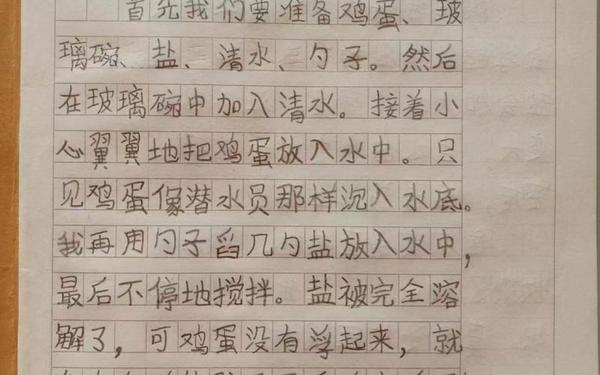 首先我们要准备鸡蛋、玻
璃碗、盐、清水、勺子。然后
在玻璃碗中加入清水。接着小
心翼翼地把鸡蛋放入水中。只
见鸡蛋像潜水员那样沉入水底。
我再用勺子舀几勺盐放入水中，
最后不停地搅拌。盐被完全溶
解了，可鸡蛋没有浮起来，就